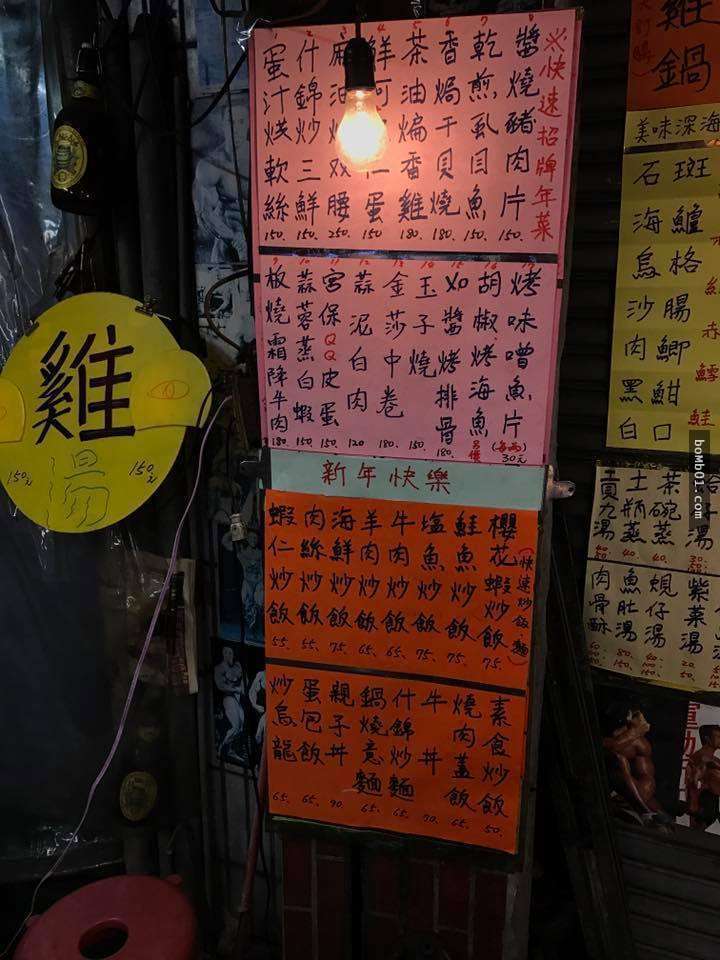 ※快速招牌年菜
8 醬燒豬肉片 150.
7 乾煎虱目魚 150.
6 香焗干貝燒 180.
5 茶油煸香雞 180.
鮮 仁蛋 150
3 麻油双腰 250.
2 什錦炒三鮮 150.
1 蛋汁烘軟絲 150.
烤味噌魚片 (每兩) 30元
16 胡椒烤海魚
15 如醬烤排骨 180.
14 玉子燒 150.
13 金莎中卷 180.
12 蒜泥白肉 120
11 宮保QQ皮蛋 150.
10 蒜蓉蒸白蝦 180.
9 板燒霜降牛肉 180.
新年快樂
(快速炒飯.麵)
櫻花蝦炒飯 75.
鮭魚炒飯 75.
塩魚炒飯 75.
牛肉炒飯 65.
羊肉炒飯 65.
海鮮炒飯 75.
肉絲炒飯 55.
蝦仁炒飯 55.
素食炒飯 50.
燒肉蓋飯 65.
牛丼 90.
什錦炒麵 65.
鍋燒意麵 65.
親子丼 90
蛋包飯 65.
炒烏龍 65.
雞湯
150元
150元
雞鍋
美味深海
斑鱸格腸鯽魽口
石海烏沙肉黑白
茶碗蒸
土瓶蒸
貢力湯
紫菜湯
蜆仔湯
魚肚湯
肉骨酥
bomb01.com